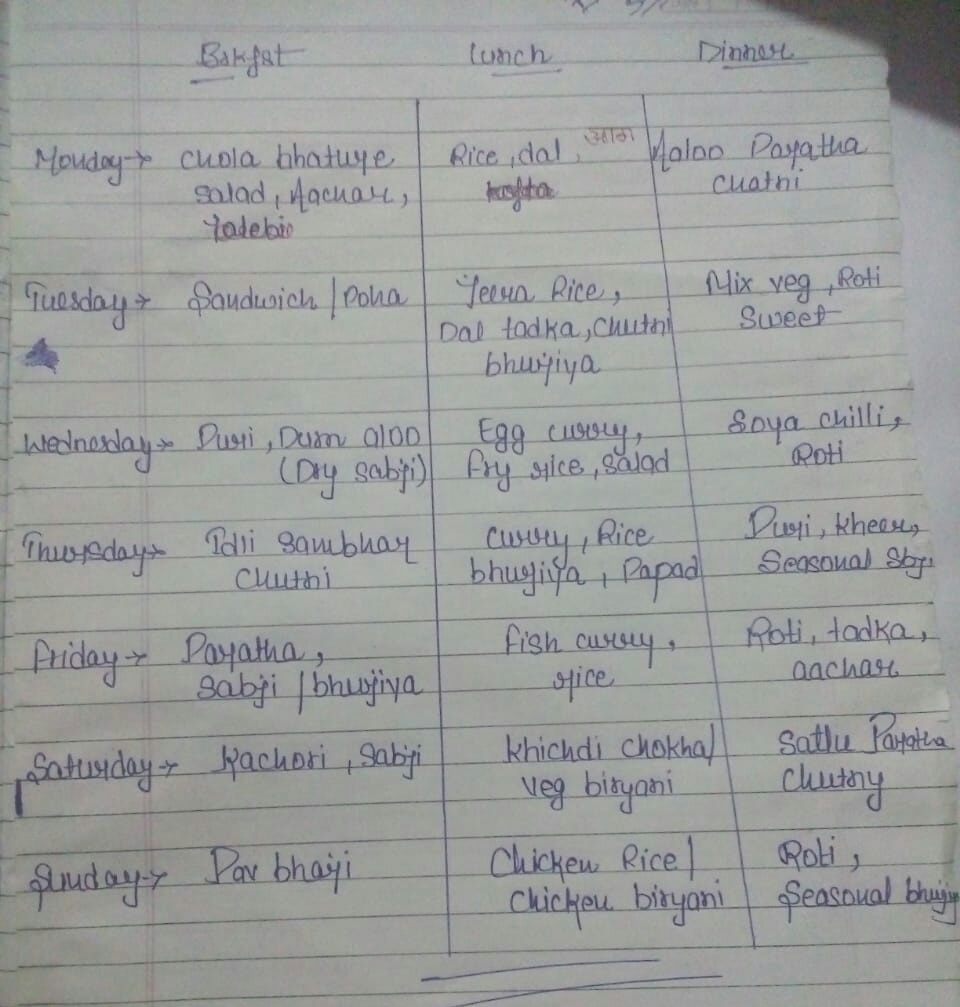 Bskfst Lunch Dinner
Monday→ Chola bhature Rice, dal, साग Aaloo Paratha
salad, Aachar, kofta Chatni
Jalebi
Tuesday→ Sandwich / Poha Jeera Rice, Mix veg, Roti
Dal tadka, Chutni Sweet
bhujiya
Wednesday→ Puri, Dum aloo Egg curry, Soya chilli,
(Dry Sabji) fry rice, salad Roti
Thursday→ Idli Sambhar Curry, Rice Puri, kheer,
Chutni bhujiya, Papad Seasonal Sbji
Friday→ Paratha, fish curry, Roti, tadka,
Sabji / bhujiya rice aachar
Saturday→ Kachori, Sabji khichdi chokha/ Sattu Paratha
veg biryani Chutny
Sunday→ Pav bhaji Chicken Rice / Roti,
Chicken biryani Seasonal bhujiya